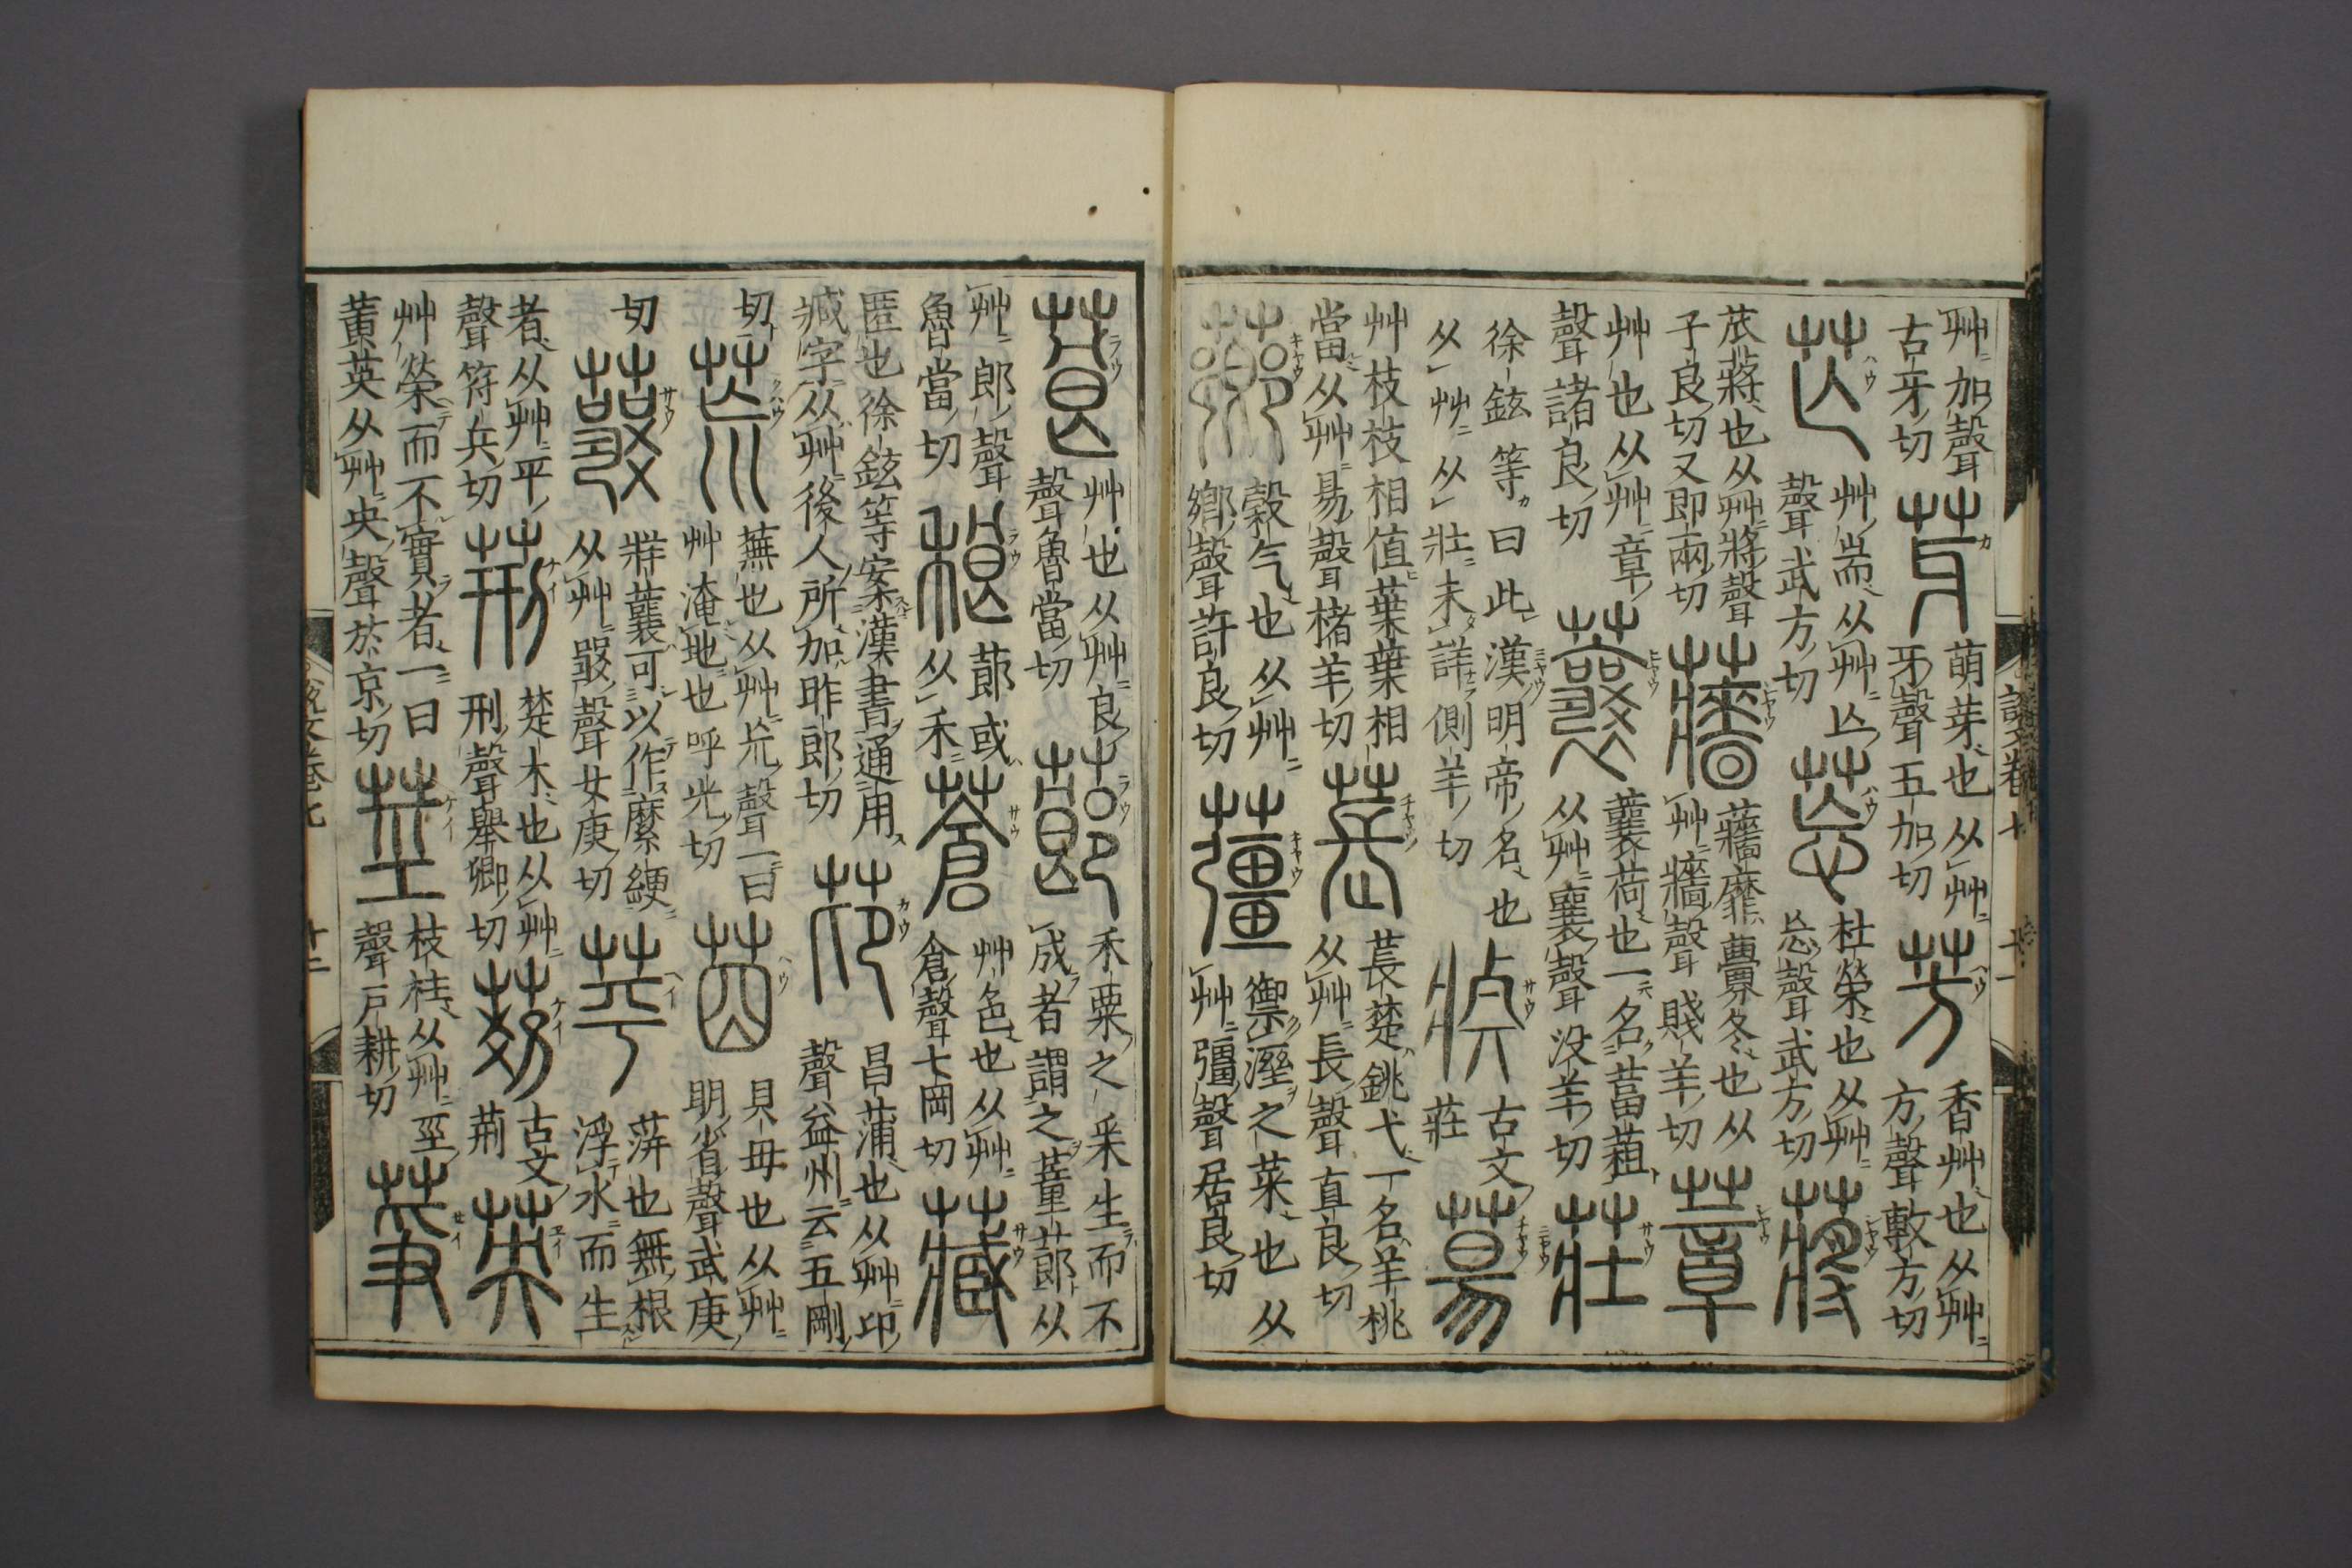 艸加聲古牙切 芽 萌芽也从艸牙聲五加切 芳 香艸也从艸方聲敷方切
芒 艸耑从艸亾聲武方切 莣 杜榮也从艸㤀聲武方切 蔣
苽蔣也从艸將聲子良切又即兩切 蘠 蘠靡虋冬也从艸牆聲賤羊切 葦
艸也从艸章聲諸良切 蘘 蘘荷也一名葍蒩从艸襄聲没羊切 莊
徐鉉等曰此漢明帝名也从艸从壯未詳側羊切 古文莊
艸枝枝相值葉葉相當从艸昜聲楮羊切 萇 萇楚銚弋一名羊桃从艸長聲直良切
薌 穀气也从艸鄉聲許良切 御溼之菜也从艸彊聲居良切
說文卷七 十一
莨 艸也从艸良聲魯當切 蓈 禾粟之釆生而不成者謂之蕫蓈从
艸郎聲魯當切 稂 蓈或从禾 蒼 艸色也从艸倉聲七岡切 藏
匿也徐鉉等案漢書通用臧字从艸後人所加昨郎切 茚 昌蒲也从艸卬聲益州云五剛
切 蕪也从艸巟聲一曰艸淹地也呼光切 莔 貝母也从艸明省聲武庚
切 牂蘘可以作縻綆从艸𤕦聲女庚切 苹 蓱也無根浮水而生
者从艸平聲符兵切 荊 楚木也从艸刑聲舉卿切 古文荊 英
艸榮而不實者一曰黃英从艸央聲於京切 莖 枝柱也从艸巠聲戶耕切 菁
說文卷七 十二